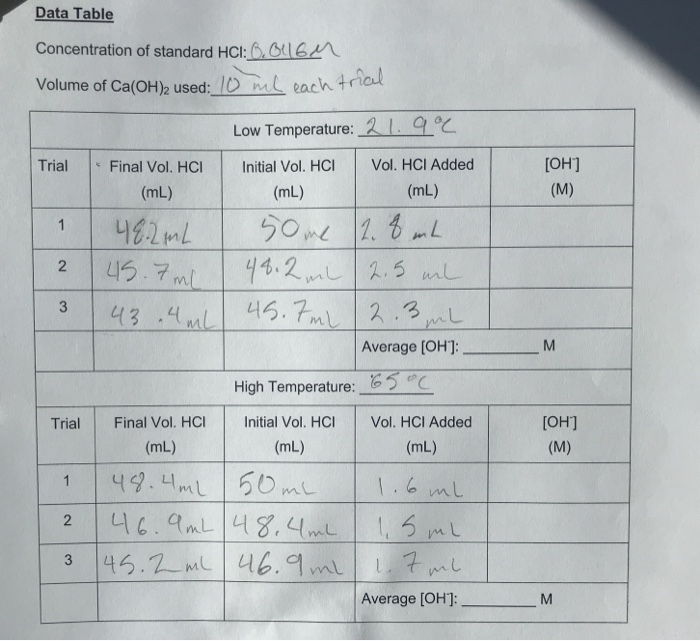 Data Table
Concentration of standard HCl: 0.0116M
Volume of Ca(OH)₂ used: 10 mL each trial
Low Temperature: 21.9°C
Trial Final Vol. HCl (mL) Initial Vol. HCl (mL) Vol. HCl Added (mL) [OH⁻] (M)
1 48.2mL 50 mL 1.8 mL
2 45.7mL 48.2mL 2.5 mL
3 43.4mL 45.7mL 2.3mL
Average [OH⁻]: ________ M
High Temperature: 65°C
Trial Final Vol. HCl (mL) Initial Vol. HCl (mL) Vol. HCl Added (mL) [OH⁻] (M)
1 48.4mL 50mL 1.6 mL
2 46.9mL 48.4mL 1.5 mL
3 45.2mL 46.9mL 1.7mL
Average [OH⁻]: ________ M